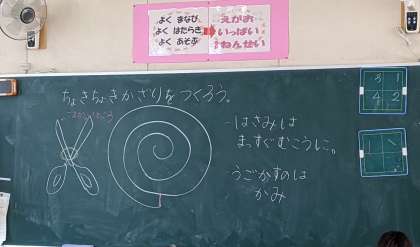 よく まなび
よく はたらき
よく あそぶ
えがお
いっぱい
ねんせい
ちょきちょきかざりをつくろう。
-はさみは
まっすぐむこうに。
-うごかすのは
かみ
3 1
4 2